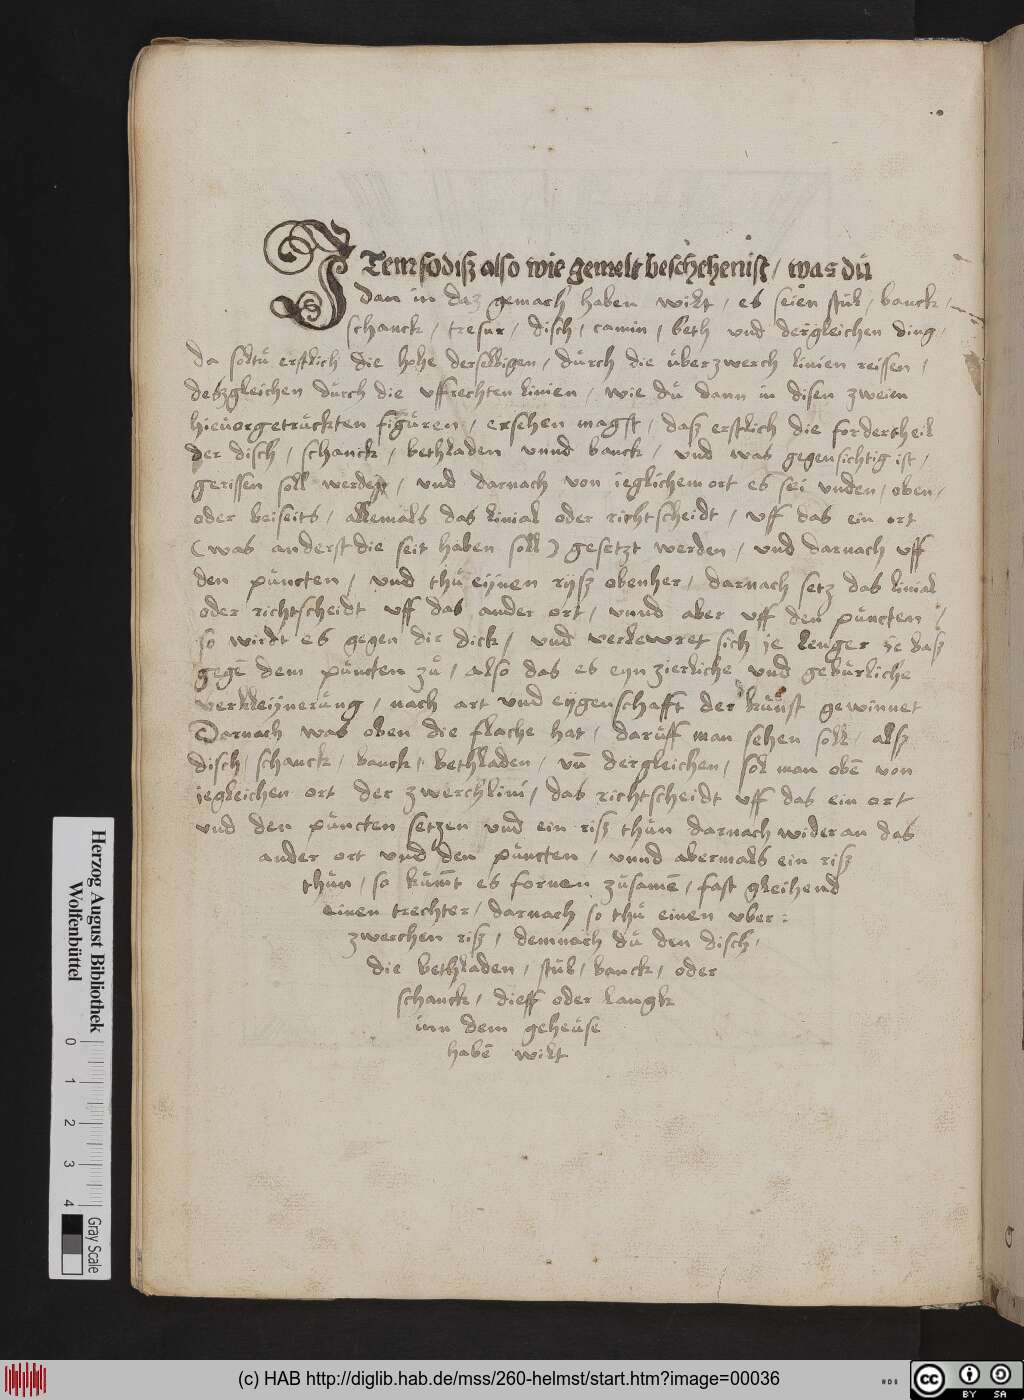 ITem so diß also wie gemelt beschehen ist / was dü
dan in daz gemach haben wilt / es seien stül / banck /
schanck / tresur / disch / camin / beth und dergleichen ding /
da soltü erstlich die höhe derselbigen / dürch die überzwerch linien reissen /
deßgleichen dürch die uffrechten linien / wie dü dann in disen zweien
hievorgetrückten figüren / ersehen magst / daß erstlich die fordertheil
der disch / schanck / bethladen unnd banck / und was gegensichtig ist /
gerissen soll werden / und darnach von ieglichem ort es sei unden / oben /
oder beiseits / allemals das linial oder richtscheidt / uff das ein ort
(was anderst die seit haben soll) gesetzt werden / und darnach uff
den püncten / und thü eijnen rijß obenher / darnach setz das linial
oder richtscheidt uff das ander ort / unnd aber uff den püncten /
so wirdt es gegen dir dick / und verlewret sich je lenger je baß
gegē dem püncten zü / also das es eijn zierliche und gebürliche
verkleijnerüng / nach art und eijgenschafft der künst gewinnet
Darnach was oben die flache hat / darüff man sehen soll / alß
disch / schanck / banck / bethladen / uñ dergleichen / sol man obē von
iegleichen ort der zwerchlini / das richtscheidt uff das ein ort
und den püncten setzen und ein riß thün darnach wider an das
ander ort und den püncten / unnd abermals ein riß
thün / so kümt es fornen züsamē / fast gleihend
einen trechter / darnach so thü einen uber:
zwerchen riß / demnach dü den disch /
die bethladen / stül / banck / oder
schanck / dieff oder langk
inn dem geheüse
habē wilt
Herzog August Bibliothek
Wolfenbüttel
0 1 2 3 4
Gray Scale
(c) HAB http://diglib.hab.de/mss/260-helmst/start.htm?image=00036
HAB
cc BY SA